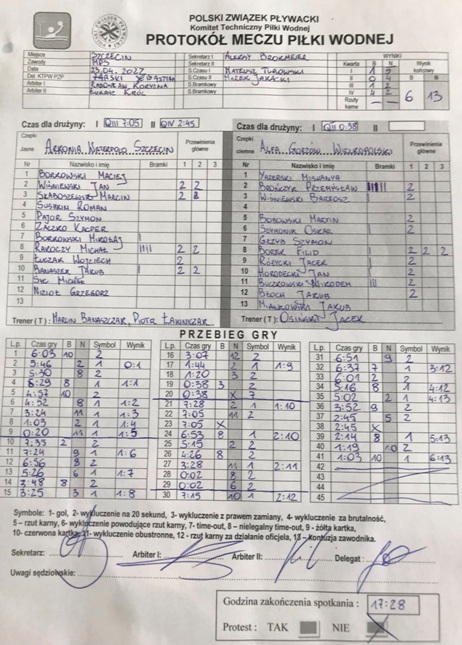 POLSKI ZWIĄZEK PŁYWACKI
Komitet Techniczny Piłki Wodnej
PROTOKÓŁ MECZU PIŁKI WODNEJ
Miejsce SZCZECIN
Zawody MPS
Data 23.04.2022
Del. KTPW PZP
Arbiter I RADOSŁAW KORYZNA
Arbiter II ŁUKASZ KRÓL
Sekretarz I
Sekretarz II
S.Czasu I MATEUSZ TUROWSKI
S.Czasu II
S.Bramkowy
S.Bramkowy
WYNIKI
Kwarta B N Wynik końcowy
I 1 5
II 0 4
III 1 2
IV 4 2
Rzuty karne — —
6 13
Czas dla drużyny: I QIII 7:05 II QIV 2:45
Czas dla drużyny: I QII 0:38 II
Czepki Jasne ARKONIA WATERPOLO SZCZECIN
Przewinienia główne
Czepki ciemne ALFA GORZÓW WIELKOPOLSKI
Przewinienia główne
Nr Nazwisko i imię Bramki 1 2 3
Nr Nazwisko i imię Bramki 1 2 3
1 BORKOWSKI MACIEJ
2 WIŚNIEWSKI JAN 2 2
3 SKABOSZEWSKI MARCIN 2 2
4 SUSHKIN ROMAN
5 PAJOR SZYMON
6 ŻACZKO KACPER
7 BORKOWSKI MIKOŁAJ I
8 RAKOCZY MICHAŁ IIII 2 2
9 ŁUCZAK WOJCIECH 2
10 BANASZEK JAKUB I 2 2
11 SYC
12 NIZIOŁ GRZEGORZ
13
2 BROŃCZYK PRZEMYSŁAW 2
3 WIŚNIEWSKI BARTOSZ 2
4
5 BOBOWSKI MARTIN 2
6 SZYMONIK OSKAR 2
7 GRZYB SZYMON
8 BOREK FILIP 2 2 2
9 RÓŻYCKI JACEK I 2
10 HORODECKI JAN I 2
11 BUCZKOWSKI NIKODEM
12 BŁOCH JAKUB 2
13 MIAŁKOWSKA JAKUB
Trener (T): MARCIN BANASZCZAK, PIOTR ŁAKINICZAK
Trener (T): OSIŃSKI JACEK
PRZEBIEG GRY
L.p. Czas gry B N Symbol Wynik
L.p. Czas gry B N Symbol Wynik
L.p. Czas gry B N Symbol Wynik
1 6:03 10 2
2 5:46 2 1 0:1
3 5:30 8 2
4 5:29 8 1 1:1
5 4:57 10 2
6 4:52 8 1 1:2
7 3:24 11 1 1:3
8 1:03 2 1 1:4
9 0:20 11 1 1:5
10 7:35 2 2
11 7:24 9 1 1:6
12 6:56 8 2
13 5:26 6 1 1:7
14 3:48 8 2
15 3:25 3 1 1:8
16 3:07 12 2
17 1:44 2 1 1:9
18 1:20 3 2
19 0:38 3 2
20 0:38 X 7
21 7:28 2 1 1:10
22 7:05 11 2
23 7:05 X 7
24 6:53 8 1 2:10
25 5:15 2 2
26 4:26 8 2
27 3:28 11 1 2:11
28 0:02 8 2
29 0:02 6 2
30 7:15 10 1 2:12
31 6:51 9 2
32 6:37 7 1 3:12
33 6:01 2 2
34 5:16 8 1 4:12
35 5:02 2 1 4:13
36 3:52 9 2
37 2:45 5 2
38 2:45 X 7
39 2:14 8 1 5:13
40 1:19 10 2
41 1:03 10 1 6:13
42
43
44
45
Symbole: 1- gol, 2- wykluczenie na 20 sekund, 3- wykluczenie z prawem zamiany, 4- wykluczenie za brutalność,
5 – rzut karny, 6- wykluczenie powodujące rzut karny, 7- time-out, 8 – nielegalny time-out, 9 - żółta kartka,
10- czerwona kartka, 11- wykluczenie obustronne, 12 - rzut karny za działanie oficjela, 13 – kontuzja zawodnika.
Sekretarz: Arbiter I: Arbiter II: Delegat :
Uwagi sędziowskie:
Godzina zakończenia spotkania : 17:28
Protest : TAK NIE X